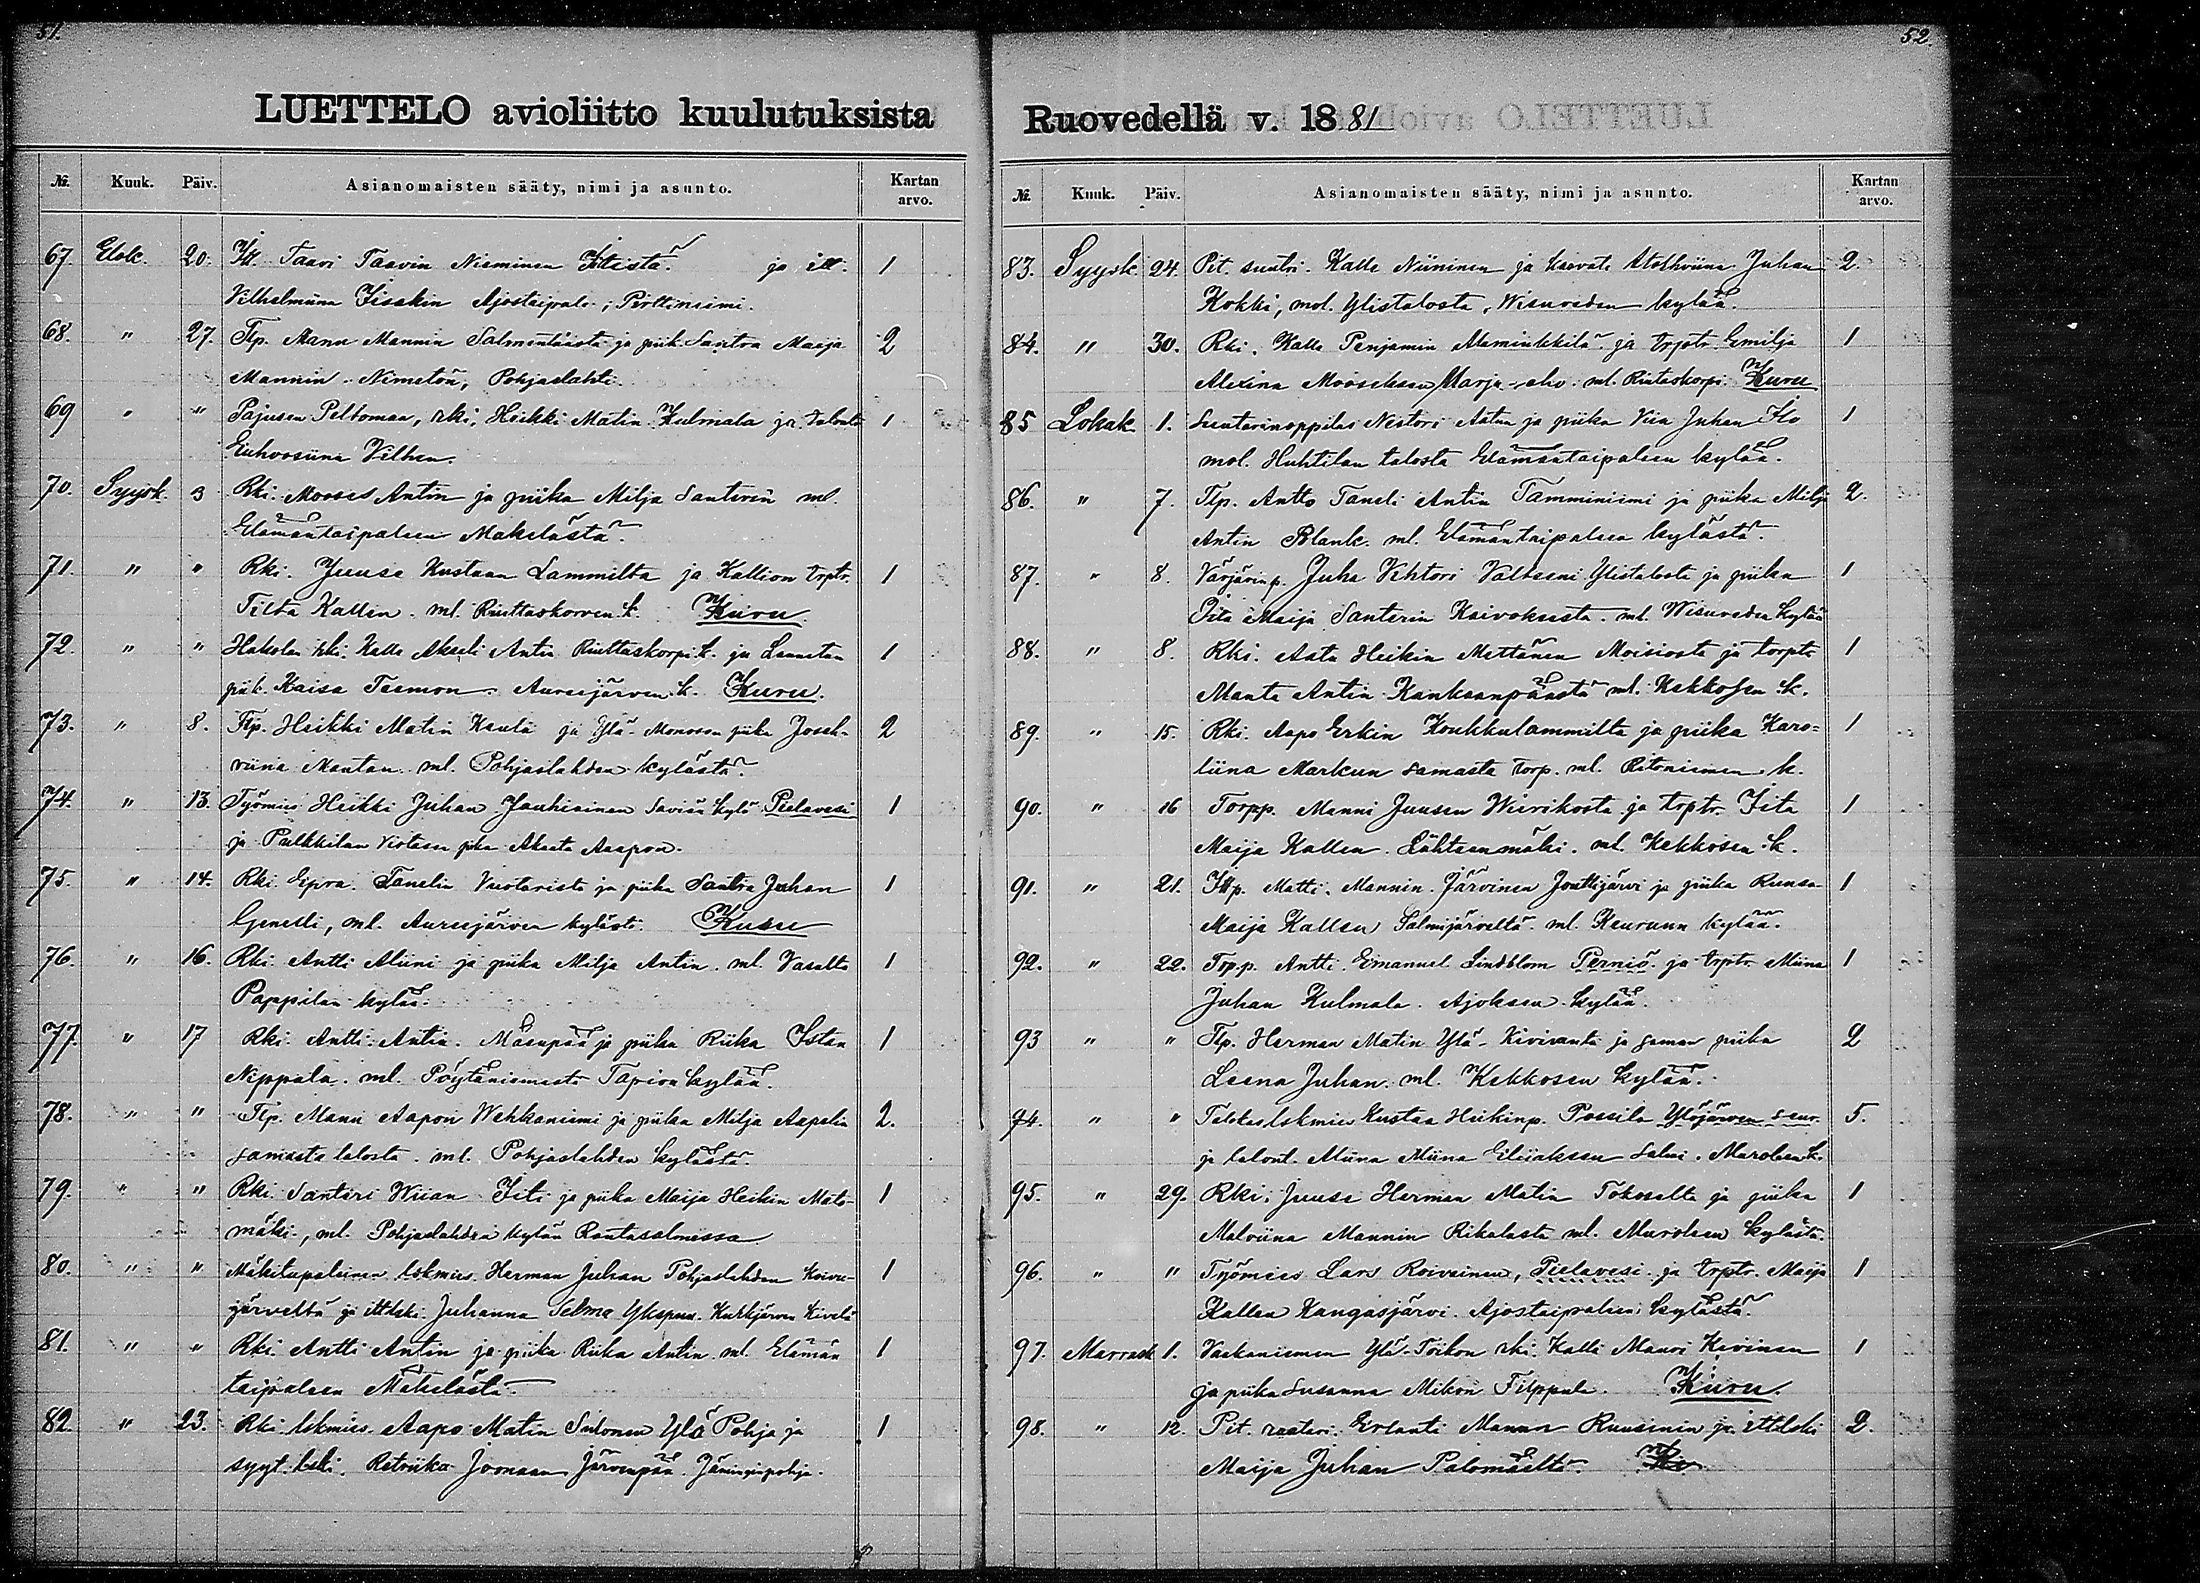 51.
LUETTELO avioliitto kuulutuksista
№. Kuuk. Päiv. Asianomaisten sääty, nimi ja asunto. Kartan arvo.
67. Elok. 20. Itt. Taavi Taavin Nieminen ja itt. 1
Vilhelmiina Iisakin Ajostaipale, Perttiniemi.
68. " 27. Tlp. Mannu Mannin Salmentaista ja piik. Santra Maija 2
Mannin Nimetön, Pohjaslahti.
69 " " Pajusen Peltoman, rki. Heikki Matin Kulmala ja talont. 1
Vilhen.
70. Syysk. 3 Rki. Mooses Antin ja piika Milja Santerin ml.
Elämäntaipaleen Mäkelästä.
71. " " Rki. Juuse Kustaan Lammilta ja Kallion trptr. 1
Tilta Kallen. ml. Riuttaskorven k. Kuru.
72. " " Hakolan rki. Kalle Akseli Antin Riuttaskorpi k. ja Lannetan 1
piik. Kaisa Teemon. Aureejärven k. Kuru.
73. " 8. Tlp. Heikki Matin Kautu ja Ylä-Monoson piika Joseh- 2
viina Mantan. ml. Pohjaslahden kylästä.
74. " 13. Työmies Heikki Juhan Jauhiainen Saviän kylä Pielavesi 1
ja Pulkkilan piika Akaata Aapon.
75. " 14. Rki. Epra. Tanelin ja piika Santra Juhan 1
ml. Aureejärven kylästä. Kuru
76. " 16. Rki. Antti Aliini ja piika Milja Antin. ml. Vasalta 1
Pappilan kylää.
77. " 17 Rki. Antti Antin. Mäenpää ja piika Riika 1
Nippala. ml. Pöytäniemestä Tapion kylää.
78. " " Tlp. Mannu Aapon Wehkaniemi ja piika Milja Aapelin 2.
samasta talosta. ml. Pohjaslahden kylästä.
79. " " Rki. Santeri Wiian Iiti ja piika Maija Heikin Mato- 1
mäki, ml. Pohjaslahden kylän Rantasalmessa
80. " " Mäkitupalainen lskmies Herman Juhan Pohjaslahden Koivu- 1
järveltä ja ittlski. Juhanna Selma Kurkijärven Kivelä
81. " " Rki. Antti Antin ja piika Riika Antin. ml. Elämän 1
taipaleen Mäkelästä.
82. " 23. Rki. lskmies. Aapo Matin Salonen Ylä Pohja ja 1
syyt. lski. Retriika Joonaan Järvenpää. Jäminginpohja.
52.
Ruovedellä v. 1881
№. Kuuk. Päiv. Asianomaisten sääty, nimi ja asunto. Kartan arvo.
83. Syysk. 24. Pit. suutri. Kalle Niininen ja Juhan 2.
Kokki, mol. Ylistalosta, Wisuveden kylää.
84. " 30. Rki. Kalle Penjamin Maminkkilä ja trptr. Emilja 1
Alexina Mooseksen Marja-aho. ml. Riutaskorpi. Kuru
85 Lokak. 1. Suutarinoppilas Nestori Aatun ja piika Viia Juhan 1
mol. Huhtilan talosta Elämäntaipaleen kylää.
86. " 7. Tlp. Antto Taneli Antin Tamminiemi ja piika Milja 2.
Antin Blank. ml. Elämäntaipaleen kylästä.
87. " 8. Värjärinp. Juha Vihtori Valtseni Ylistalosta ja piika 1
Iita Maija Santerin Kaivoksesta. ml. Wisuveden kylää
88. " 8. Rki. Aatu Heikin Mettänen Moisiosta ja torptr 1
Manta Antin Kankaanpäästä ml. Kekkosen k.
89. " 15. Rki. Aapo Erkin Koukkulammilta ja piika Karo- 1
liina Markun samasta torp. ml. Ritoniemen k.
90. " 16 Torpp. Manni Juusen Wierikosta ja trptr. Iita 1
Maija Kallen. Lähteenmäki. ml. Kekkosen k.
91. " 21. Itp. Matti. Mannin. Järvinen Jouttijärvi ja piika 1
Maija Kallen Salmijärveltä. ml. Keuruun kylää.
92. " 22. Torpp. Antti Emanuel Lindblom Perniö ja trptr. Miina 1
Juhan Kulmala. Ajoksen kylää.
93 " " Tlp. Herman Matin Ylä-Kiviranta ja saman piika 2
Leena Juhan. ml. Kekkosen kylää.
94. " " Talokaslskmies Kustaa Heikinp. Possila Ylöjärven seur. 5.
ja talont. Miina Eliiaksen Salmi. Muroleen k.
95. " 29. Rki. Juuse Herman Matin Tokosalta ja piika 1
Malviina Mannin Rikalasta ml. Muroleen kylästä.
96. " " Työmies Lars Roivainen, Pielavesi ja trptr. Maija 1
Kallen Kangasjärvi. Ajostaipaleen kylästä.
97. Marrask. 1. Vaskaniemen Ylä-Toikon rki. Kalle Manni Kivinen 1
ja piika Susanna Mikon Filppula. Kuru.
98. " 12. Pit. raatari. Erlanti Mannin Ruusinin ja ittlski 2.
Maija Juhan Palomäeltä.